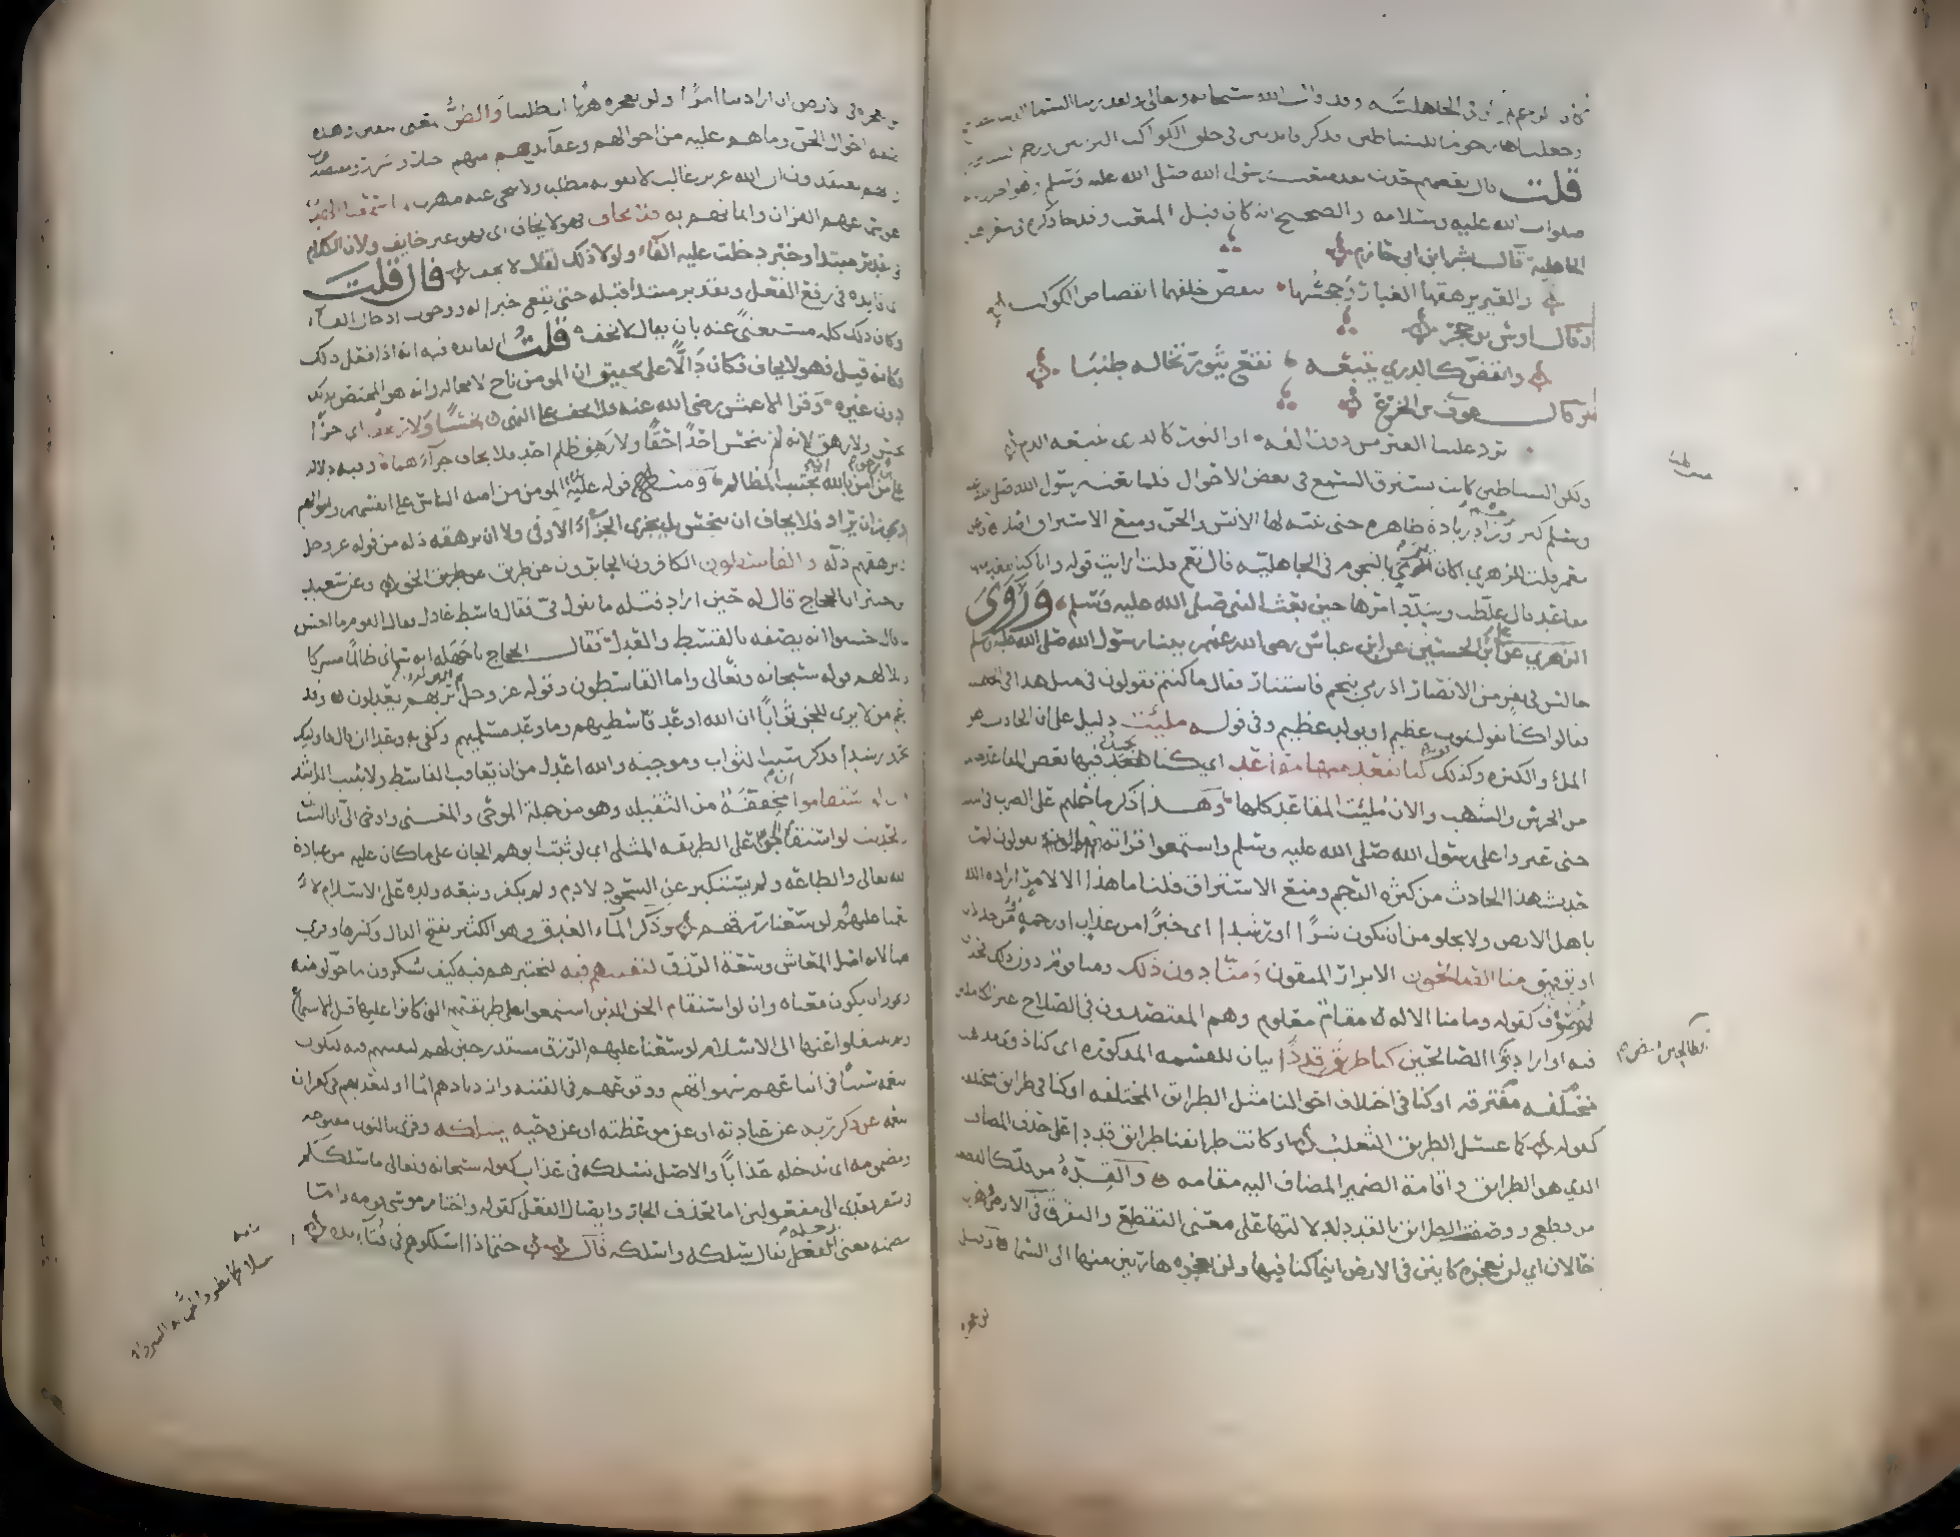 كان الرجم في الجاهلية وقد قال الله سبحانه وتعالى ولقد زينا السماء الدنيا بمصابيح
وجعلناها رجوما للشياطين فذكر فائدتين في خلق الكواكب التزيين ورجم الشياطين
قلت قال بعضهم حدث بعد مبعث رسول الله صلى الله عليه وسلم وهو احدى اياته
صلوات الله عليه وسلامه والصحيح انه كان قبل المبعث وقد جاء ذكره في شعر اهل
الجاهلية قال بشر ابن ابي خازم
والعير يرهقها الغبار وجحشها ينقض خلفهما انقضاض الكوكب
وقال اوس بن حجر
وانقض كالدري يتبعه نقع يثور تخاله طنبا
وقال عوف بن الخرع
يرد علينا العير من دون الفه او الثور كالدري يتبعه الدم
ولكن الشياطين كانت تسترق السمع في بعض الاحوال فلما بعث رسول الله صلى الله عليه
وسلم كثر الرجم وزاد زيادة ظاهرة حتى تنبه لها الانس والجن ومنع الاستراق اصلا وعن
معمر قلت للزهري اكان يرمى بالنجوم في الجاهلية قال نعم قلت ارايت قوله وانا كنا نقعد منها
مقاعد قال غلظت وشدد امرها حين بعث النبي صلى الله عليه وسلم وروى
الزهري عن علي بن الحسين عن ابن عباس رضي الله عنهم بينا رسول الله صلى الله عليه وسلم
جالس في نفر من الانصار اذ رمي بنجم فاستنار فقال ما كنتم تقولون في مثل هذا في الجاهلية
فقالوا كنا نقول يموت عظيم او يولد عظيم وفي قوله ملئت دليل على ان الحادث هو
الملء والكثرة وكذلك قوله كنا نقعد منها مقاعد اي كنا نجد فيها بعض المقاعد خالية
من الحرس والشهب والان ملئت المقاعد كلها وهذا ذكر ما حملهم على الضرب في البلاد
حتى عثروا على رسول الله صلى الله عليه وسلم واستمعوا قراته يقولون لما
حدث هذا الحادث من كثرة الرجم ومنع الاستراق قلنا ما هذا الا لامر اراده الله
باهل الارض ولا يخلو من ان يكون شرا او رشدا اي خيرا من عذاب او رحمة او من خذلان
او توفيق منا الصالحون الابرار المتقون ومنا دون ذلك ومنا قوم دون ذلك فحذف
الموصوف كقوله وما منا الا له مقام معلوم وهم المقتصدون في الصلاح غير الكاملين
فيه او ارادوا الصالحين كنا طرايق قددا بيان للقسمة المذكورة اي كنا ذوي مذاهب
مختلفه مفترقه او كنا في اختلاف احوالنا مثل الطرايق المختلفه او كنا في طرايق مختلفه
كقوله كما عسل الطريق الثعلب او كانت طرايقنا طرايق قددا على حذف المضاف
الذي هو الطرايق واقامة الضمير المضاف اليه مقامه والقدة من قد كالقطعه
من قطع ووصفت الطرايق بالقدد لدلالتها على معنى التقطع والتفرق في الارض هربا
حالان اي لن نعجزه كاينين في الارض اينما كنا فيها ولن نعجزه هاربين منها الى السماء وقيل
لن نعجزه
لن نعجزه في الارض ان اراد بنا امرا ولن نعجزه هربا ان طلبنا والظن بمعنى اليقين وهذه
صفه احوال الجن وما هم عليه من احوالهم وعقايدهم منهم اخيار واشرار ومقتصدون
وانهم يعتقدون ان الله عزيز غالب لا يفوته مطلب ولا ينجي عنه مهرب لما سمعنا الهدى
هو سماعهم القران وايمانهم به فلا يخاف فهو لا يخاف اي فهو غير خايف ولان الكلام
في تقدير مبتدا وخبر دخلت عليه الفاء ولولا ذلك لقال لا يخف فان قلت
اي فايده في رفع الفعل وتقدير مبتدا قبله حتى يقع خبرا له ووجوب ادخال الفاء
وكان ذلك كله مستغنى عنه بان يقال لا يخف قلت الفايده فيه انه اذا فعل ذلك
فكانه قيل فهو لا يخاف فكان دالا على تحقيق ان المومن ناج لا محاله وانه هو المختص بذلك
دون غيره وقرا الاعمش رضي الله عنه فلا يخف على النهي بخسا ولا رهقا اي جزا
بخس ولا رهق لانه لم يبخس احدا حقا ولا رهق ظلم احد فلا يخاف جزاءهما وفيه دلاله
على ان من حق من امن بالله ان يجتنب المظالم ومنه قوله عليه السلام المومن من امنه الناس على انفسهم واموالهم
ويجوز ان يراد فلا يخاف ان يبخس بل يجزى الجزاء الاوفى ولا ان ترهقه ذله من قوله عز وجل
ترهقهم ذلة والقاسطون الكافرون الجايرون عن طريق الحق وعن سعيد
بن جبير ان الحجاج قال له حين اراد قتله ما تقول في فقال قاسط عادل فقال القوم ما احسن
ما قال حسبوا انه يصفه بالقسط والعدل فقال الحجاج يا جهلة انه سماني ظالما مشركا
وتلا لهم قوله سبحانه وتعالى واما القاسطون وقوله عز وجل ثم الذين كفروا بربهم يعدلون وقد
زعم من لا يرى للجن ثوابا ان الله اوعد قاسطيهم وما وعد مسلميهم وكفى به وعدا ان قال فاوليك
تحروا رشدا فذكر سبب الثواب وموجبه والله اعدل من ان يعاقب القاسط ولا يثيب الراشد
وان لو استقاموا ان مخففة من الثقيله وهو من جملة الموحى والمعنى واوحي الي ان الشان
والحديث لو استقام الجن على الطريقه المثلى اي لو ثبت ابوهم الجان على ما كان عليه من عبادة
الله تعالى والطاعه ولم يستكبر عن السجود لادم ولم يكفر وتبعه ولده على الاسلام لا
نعمنا عليهم ولوسعنا رزقهم وذكر الماء الغدق وهو الكثير بفتح الدال وكسرها وقرئ
بهما لانه اصل المعاش وسعة الرزق لنفتنهم فيه لنختبرهم فيه كيف يشكرون ما خولوا منه
ويجوز ان يكون معناه وان لو استقام الجن الذين استمعوا على طريقتهم التي كانوا عليها قبل الاستماع
ولم ينتقلوا عنها الى الاسلام لوسعنا عليهم الرزق مستدرجين لهم لنفتنهم فيه لتكون
النعمه سببا في اتباعهم شهواتهم ووقوعهم في الفتنه وازديادهم اثما او لنعذبهم في كفران
النعمه عن ذكر ربه عن عبادته او عن موعظته او عن وحيه يسلكه وقرئ بالنون مفتوحه
ومضمومه اي ندخله عذابا والاصل نسلكه في عذاب كقوله سبحانه وتعالى ما سلككم
في سقر فعدي الى مفعولين اما بحذف الجار وايصال الفعل كقوله واختار موسى قومه واما
بتضمينه معنى ندخله يقال سلكه واسلكه قال حتى اذا اسلكوهم في قتايده